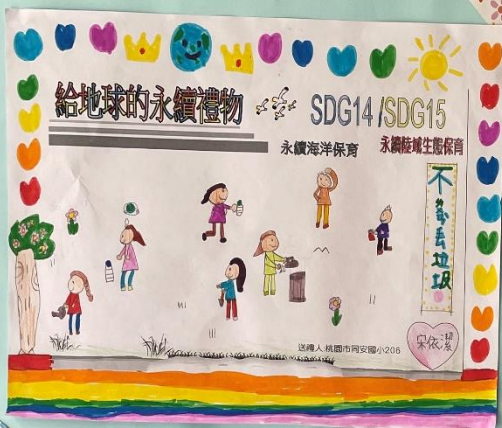 給地球的永續禮物
SDG14/SDG15
永續海洋保育
永續陸域生態保育
不亂丟垃圾
送禮人:桃園市同安國小206
依潔